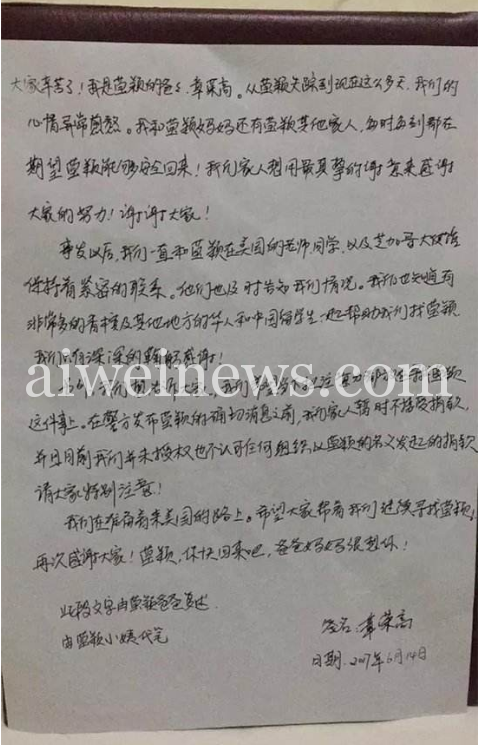 大家辛苦了！我是莹颖的爸爸，章荣高。从莹颖失踪到现在这么多天，我们的
心情异常煎熬。我和莹颖妈妈还有莹颖其他家人，每时每刻都在
期望莹颖能够安全回来！我们家人想用最真挚的谢意来感谢
大家的努力！谢谢大家！
事发以后，我们一直和莹颖在美国的老师、同学，以及芝加哥大使馆
保持着紧密的联系。他们也及时告知我们情况。我们也知道有
非常多的香槟及其他地方的华人和中国留学生一起帮助我们找莹颖
我们只有深深的鞠躬感谢！
aiweinews.com
这件事上。在警方发布莹颖的确切消息之前，我们家人暂时不接受捐款，
并且目前我们并未授权也不认可任何组织以莹颖的名义发起的捐款
请大家特别注意！
我们在准备着来美国的路上。希望大家帮着我们继续寻找莹颖，
再次感谢大家！莹颖，你快回来吧，爸爸妈妈很想你！
此段文字由莹颖爸爸口述
由莹颖小姨代笔
签名：章荣高
日期：2017年6月14日